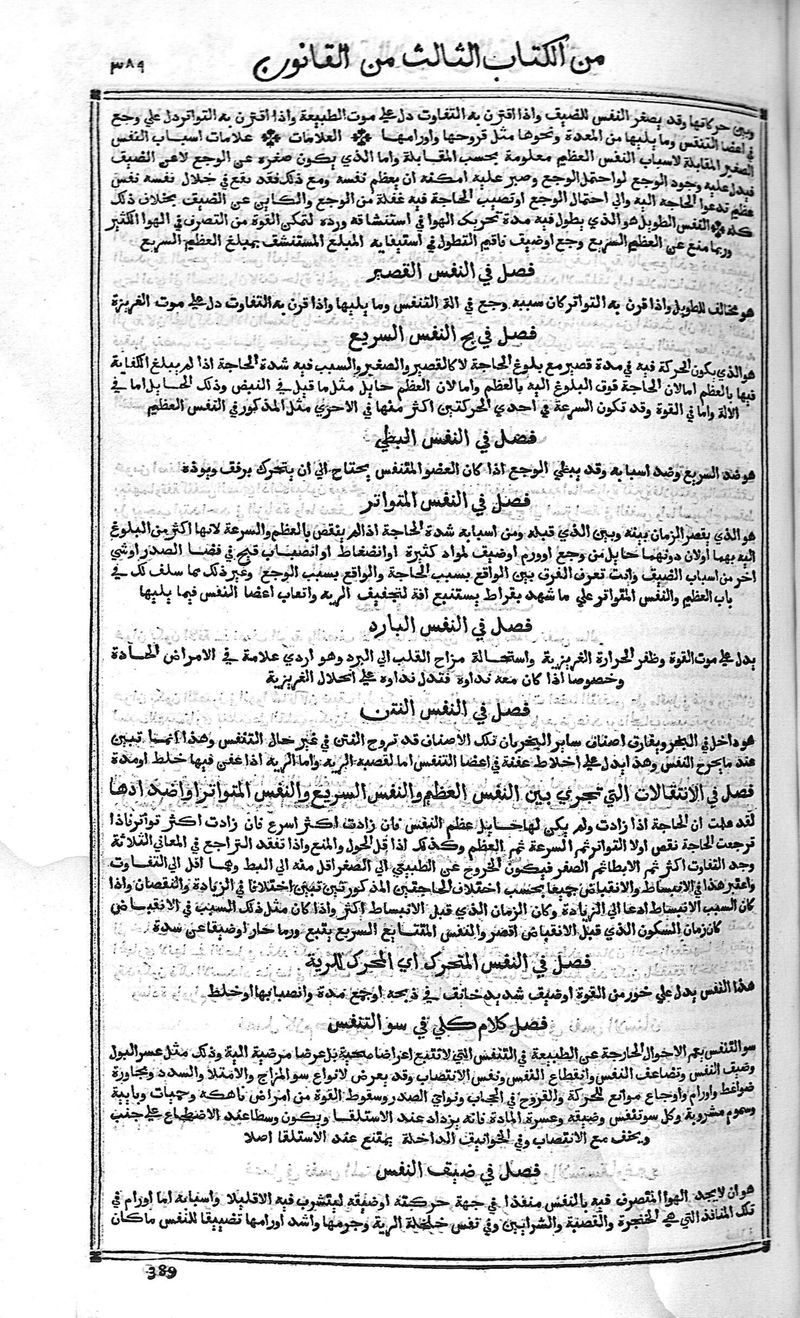 من الكتاب الثالث من القانون
٣٨٩
وبين حركاتها وقد يصغر النفس للضيف واذا اقترن به التفاوت دل علي موت الطبيعة واذا اقترن به التواتر دل علي وجع
في اعضا التنفس وما يليها من المعدة ونحوها مثل قروحها واورامها ✤ العلامات ✤ علامات اسباب النفس
الصغير المقابلة لاسباب النفس العظيم معلومة بحسب المقابلة واما الذي يكون صغره عن الوجع لاعن الضيف
فيدل عليه وجود الوجع لو احتمل الوجع وصبر عليه امكنه ان يعظم نفسه ومع ذلك فقد يقع في خلال نفسه نفس
عظيم تدعوا الحاجة اليه والي احتمال الوجع اوتصيب الحاجة فيه غفلة من الوجع والكاين عن الضيف بخلاف ذلك
كله ✤ النفس الطويل هو الذي يطول فيه مدة تحريك الهوا في استنشاقه ورده لتمكن القوة من التصرف في الهوا الكثير
وربما منع عن العظيم السريع وجع اوضيف ناقيم التطول في استيفايه المبلغ المستنشف بمبلغ العظيم السريع
فصل في النفس القصير
هو مخالف للطويل واذا قرن به التواتر كان سببه وجع في الة التنفس وما يليها واذا قرن به التفاوت دل علي موت الغريزة
فصل في بح النفس السريع
هو الذي يكون الحركة فيه في مدة قصير مع بلوغ الحاجة لا كالقصير والصغير والسبب فيه شدة الحاجة اذا لم يبلغ الكفاية
فيها بالعظم اما لان الحاجة فوق البلوغ اليه بالعظم واما لان العظم حايل مثل ما قيل في النبض وذلك الحايل اما في
الالة واما في القوة وقد تكون السرعة في احدي الحركتين اكثر منها في الاخري مثل المذكور في النفس العظيم
فصل في النفس البطي
هو ضد السريع وضد اسبابه وقد يبطي الوجع اذا كان العضو المتنفس يحتاج الي ان يتحرك برفق وبوده
فصل في النفس المتواتر
هو الذي يقصر الزمان بينه وبين الذي قبله ومن اسبابه شدة الحاجة اذا لم ينقض بالعظم والسرعة لانها اكثر من البلوغ
اليه بهما اولان دونهما حايل من وجع اوورم اوضيف لمواد كثيرة اوانضغاط اوانصباب قيح في فضا الصدر اوشي
اخر من اسباب الضيف وانت تعرف الفرق بين الواقع بسبب الحاجة والواقع بسبب الوجع وغير ذلك مما سلف لك في
باب العظيم والنفس المتواتر علي ما شهد بقراط يستتبع افة لتجفيف الريه واتعاب اعضا النفس فيما يليها
فصل في النفس البارد
يدل علي موت القوة وظفر الحرارة الغريزية واستحالة مزاج القلب الي البرد وهو اردي علامة في الامراض الحادة
وخصوصا اذا كان معه نداوة فتدل نداوة علي انحلال الغريزية
فصل في النفس النتن
هو داخل في البخر ويفارق اصناف ساير البخر بان تلك الاصناف قد تروح النتن في غير حال التنفس وهذا انما تبين
عند ما يخرج النفس وهذا يدل علي اخلاط عفنة في اعضا التنفس اما لقصبه الريه واما الريه اذا عفن فيها خلط اومدة
فصل في الانتقالات التي تجري بين النفس العظيم والنفس السريع والنفس المتواتر او اضدادها
لقد علمت ان الحاجة اذا زادت ولم يكن لها حايل عظم النفس فان زادت اكثر اسرع فان زادت اكثر تواتر فاذا
ترجعت الحاجة نقص اولا التواتر ثم السرعة ثم العظم وكذلك اذا قل الحول والمنع واذا تفقد التراجع في المعاني الثلاثة
وجد التفاوت اكثر ثم الابطا ثم الصغر فيكون الخروج عن الطبيعي الي الصغر اقل منه الي البط وهما اقل الي التفاوت
واعتبر هذا في الانبساط والانقباض جميعا بحسب اختلاف الحاجتين المذكورتين تبين اختلافا في الزيادة والنقصان واذا
كان السبب الانبساط ادعا الي الزيادة وكان الزمان الذي قبل الانبساط اكثر واذا كان مثل ذلك السبب في الانقباض
كان زمان السكون الذي قبل الانقباض اقصر والنفس المتتابع السريع يتبع ورما حارا وضيقا عن سدة
فصل في النفس المتحرك اي المحرك للرية
هذا النفس يدل علي خور من القوة اوضيف شديد خانف في ذبحه اوجمع مدة وانصبابها اوخلط
فصل كلام كلي في سو التنفس
سو التنفس يعم الاحوال الخارجة عن الطبيعة في التنفس التي لا تتبع اعراضا صحية بل عرضا مرضية الية وذلك مثل عسر البول
وضيف النفس وتضاعف النفس وانقطاع النفس ونفس الانتصاب وقد يعرض لانواع سو المزاج والامتلا والسدد ومجاورة
ضواغط واورام واوجاع موانع للحركة والقروح في الحجاب ونواحي الصدر وسقوط القوة من امراض ناهكه وحميات وبايية
وسموم مشروبة وكل سو تنفس وضيقه وعسرة المادة فانه يزداد عند الاستلقا ويكون وسطا عند الاضطجاع علي جنب
ويخف مع الانتصاب وفي الخوانيف الداخلة يمتنع عند الاستلقا اصلا
فصل في ضيف النفس
هو ان لا يجد الهوا المتصرف فيه بالنفس منفذا في جهة حركته اوضيقه ليتشرب فيه الا قليلا واسبابه اما اورام في
تلك المنافذ التي هي الحنجرة والقصبة والشرايين وفي نفس خلخلة الرية وجرمها واشد اورامها تضييقا للنفس ما كان
389